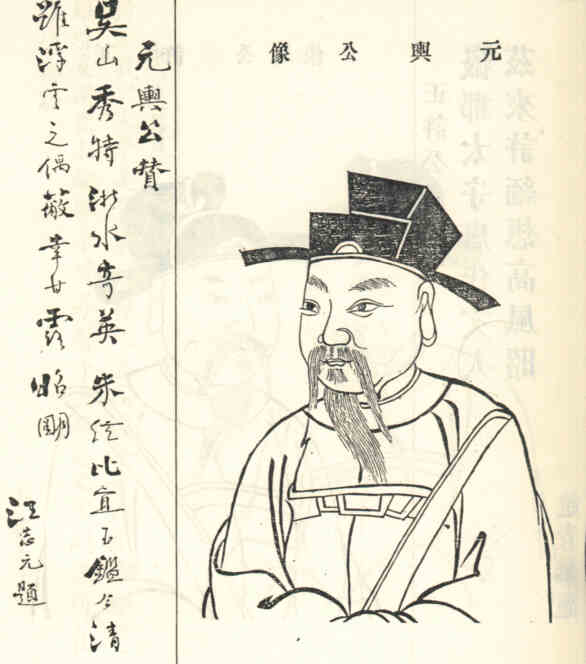 元輿公像
元輿公贊
吳山秀特浙水奇英朱絃比直玉鑑清
雖浮雲之偶蔽幸甘露昭朙
汪志元題